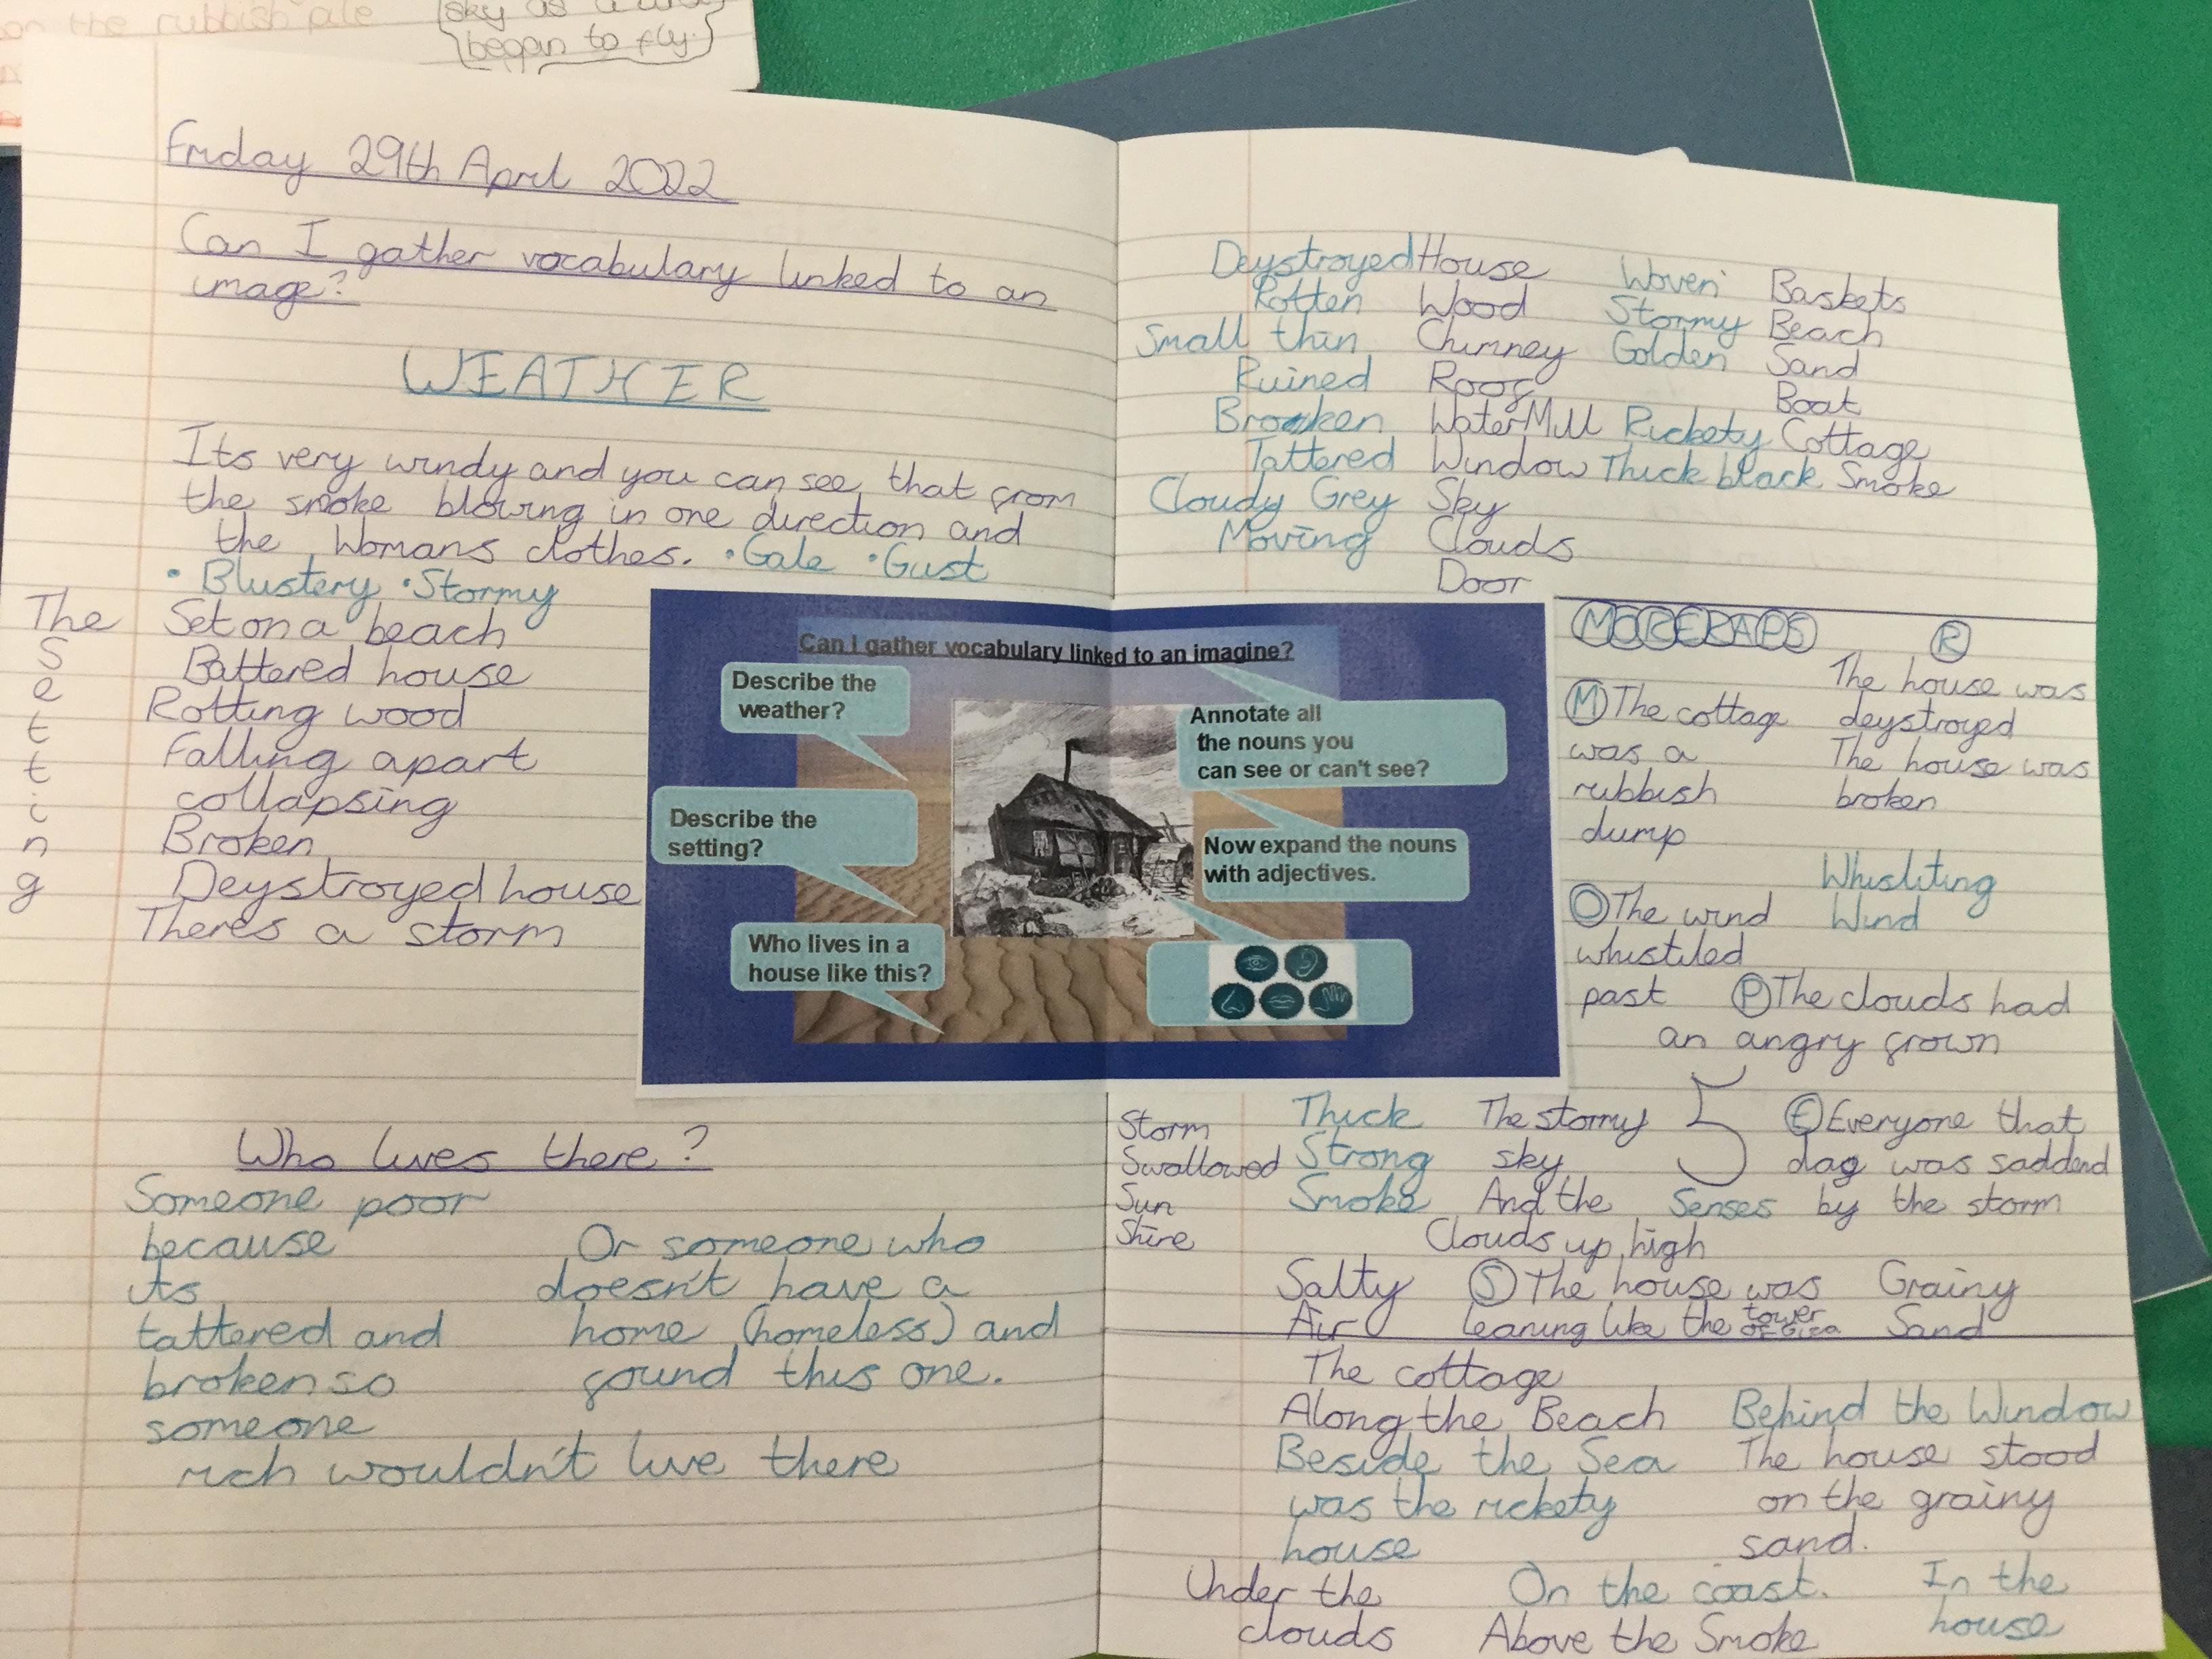 on the rubbish pile
sky as a
began to fly.
Friday 29th April 2022
Can I gather vocabulary linked to an
image?
WEATHER
Its very windy and you can see that from
the smoke blowing in one direction and
the Womans clothes. •Gale •Gust
• Blustery •Stormy
The Setting
Set on a beach
Battered house
Rotting wood
Falling apart
collapsing
Broken
Deystroyed house
Theres a storm
Who lives there?
Someone poor
because
its
tattered and
broken so
someone
rich wouldn't live there
Or someone who
doesn't have a
home (homeless) and
found this one.
Can I gather vocabulary linked to an imagine?
Describe the
weather?
Describe the
setting?
Who lives in a
house like this?
Annotate all
the nouns you
can see or can't see?
Now expand the nouns
with adjectives.
Deystroyed House
Rotten Wood
Small thin Chimney
Ruined Roof
Broken WaterMill
Tattered Window
Cloudy Grey Sky
Moving Clouds
Door
Woven Baskets
Stormy Beach
Golden Sand
Boat
Rickety Cottage
Thick black Smoke
MORERAPS
M The cottage
was a
rubbish
dump
R
The house was
deystroyed
The house was
broken
Whisliting
Wind
O The wind
whistiled
past
P The clouds had
an angry frown
Storm
Swallowed
Sun
Shine
Thick
Strong
Smoke
The stormy
sky
And the
Clouds up high
5
Senses
E Everyone that
day was saddend
by the storm
Salty
Air
S The house was
leaning like the tower
of Giza
Grainy
Sand
The cottage
Along the Beach
Beside the Sea
was the rickety
house
Behind the Window
The house stood
on the grainy
sand.
Under the
clouds
On the coast.
Above the Smoke
In the
house